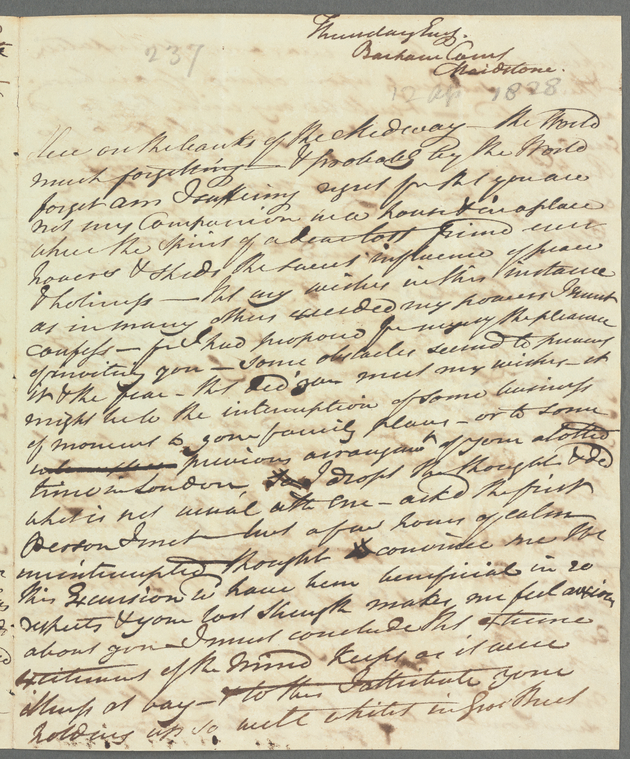 Thursday Evg.
Barham Court
Maidstone.
237
12 Ap 1828
Here on the banks of the Medway – the World
much forgetting – & probably by the World
forgot am I suffering regret for that you are
not my Companion in a house & in a place
where the spirit of a dear lost friend ever
hovers & sheds the sweet influence of peace
& holiness – that my wishes in this instance
as in many others exceeded my powers I must
confess – for I had proposed myself the pleasure
of inviting you – some obstacles seemed to prevent
it & the fear – that did you meet my wishes – it
might be to the interruption of some business
of moment to your family plans – or to some
previous arrangemt. of your alotted
time in London I dropt the thought & did
what is not usual with me – asked the first
Person I met – but a few hours of calm
uninterrupted thought convince me that
this Excursion wd have been beneficial in
respects & your lost strength makes me feel anxious
about you – I must conclude that extreme
excitement of the mind keeps as it were
illness at bay – & to this I attribute your
holding up so well whilst in